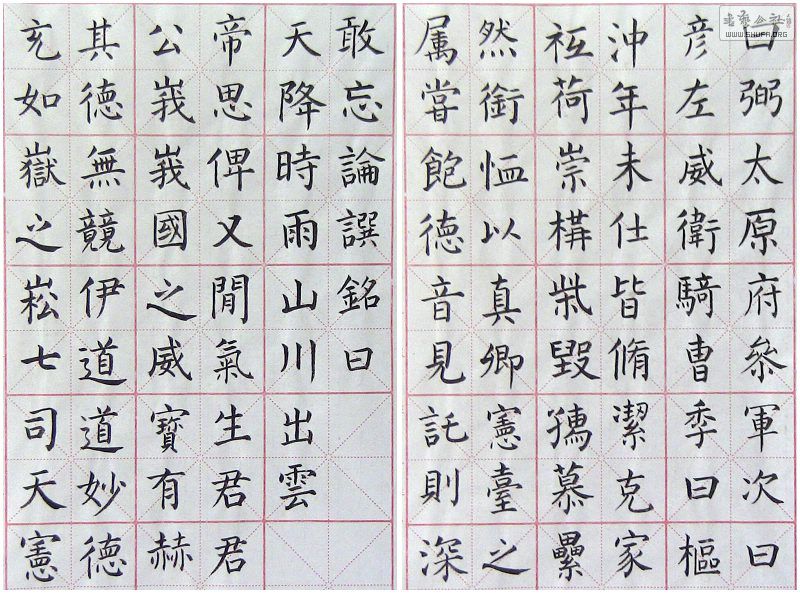 曰弼太原府叅軍次曰
彦左威衛騎曺季曰樞
沖年未仕皆脩潔克家
祗荷崇構柴毀孺慕纍
然銜恤以真卿憲臺之
属甞飽德音見託則深
敢忘論譔銘曰
天降時雨山川出雲
帝思俾又閒氣生君君
公峩峩國之威寳有赫
其德無競伊道道妙德
充如嶽之崧七司天憲
書藝公社
WWW.SHUFA.ORG